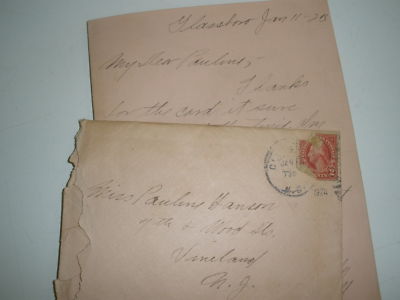 Glassboro Jan 11-25
My Dear Pauline,-
Thanks
for the card it sure
Miss Pauline Hanson
7th & Wood Sts.
Vineland
N. J.